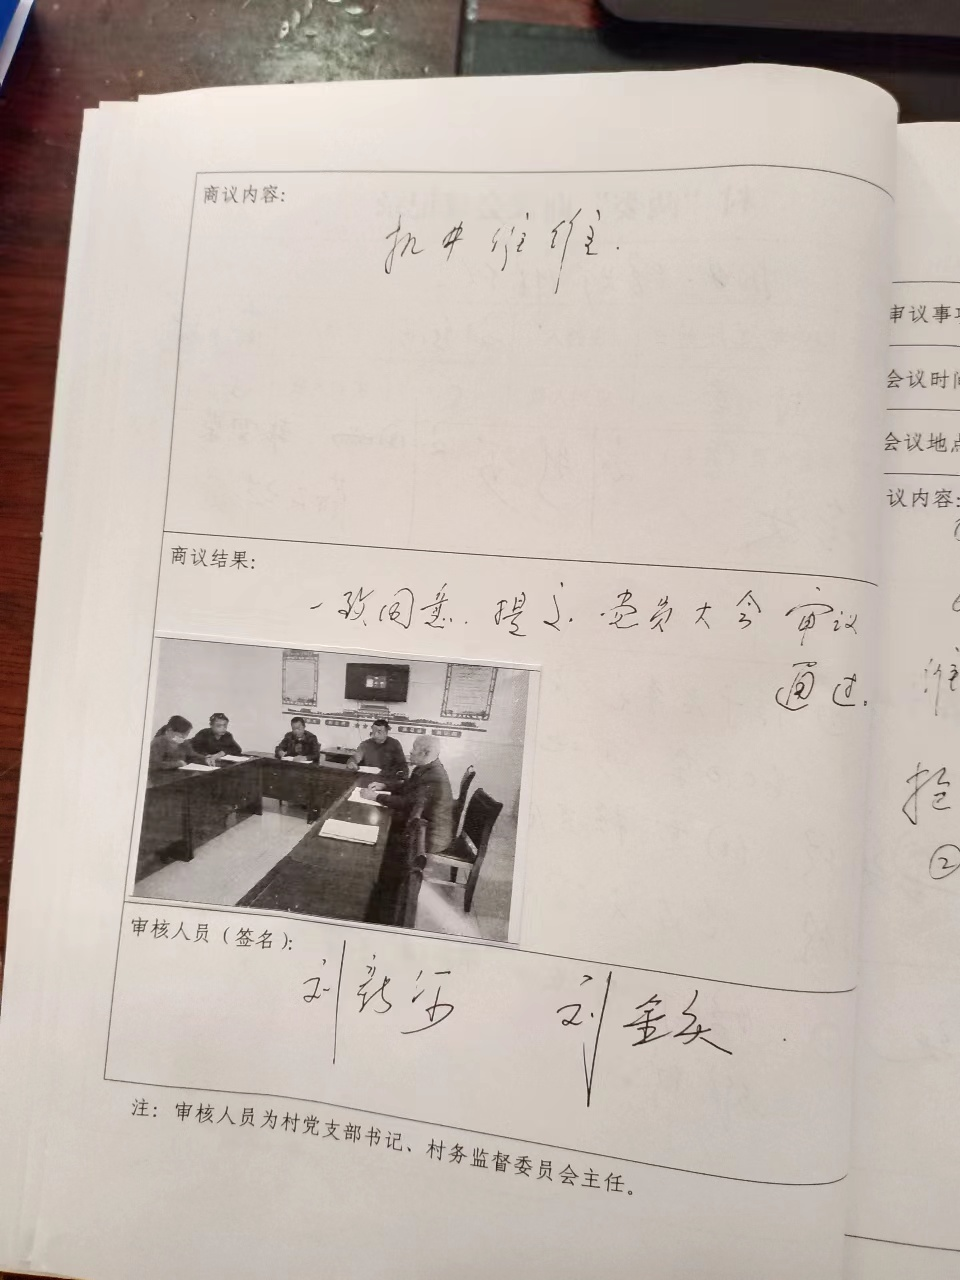 商议内容:
机井维维.
商议结果:
一致同意.提交.党员大会审议
通过。
审核人员(签名):
刘 刘金
注: 审核人员为村党支部书记、村务监督委员会主任。
审议事项
会议时间
会议地点
议内容:
抢
②